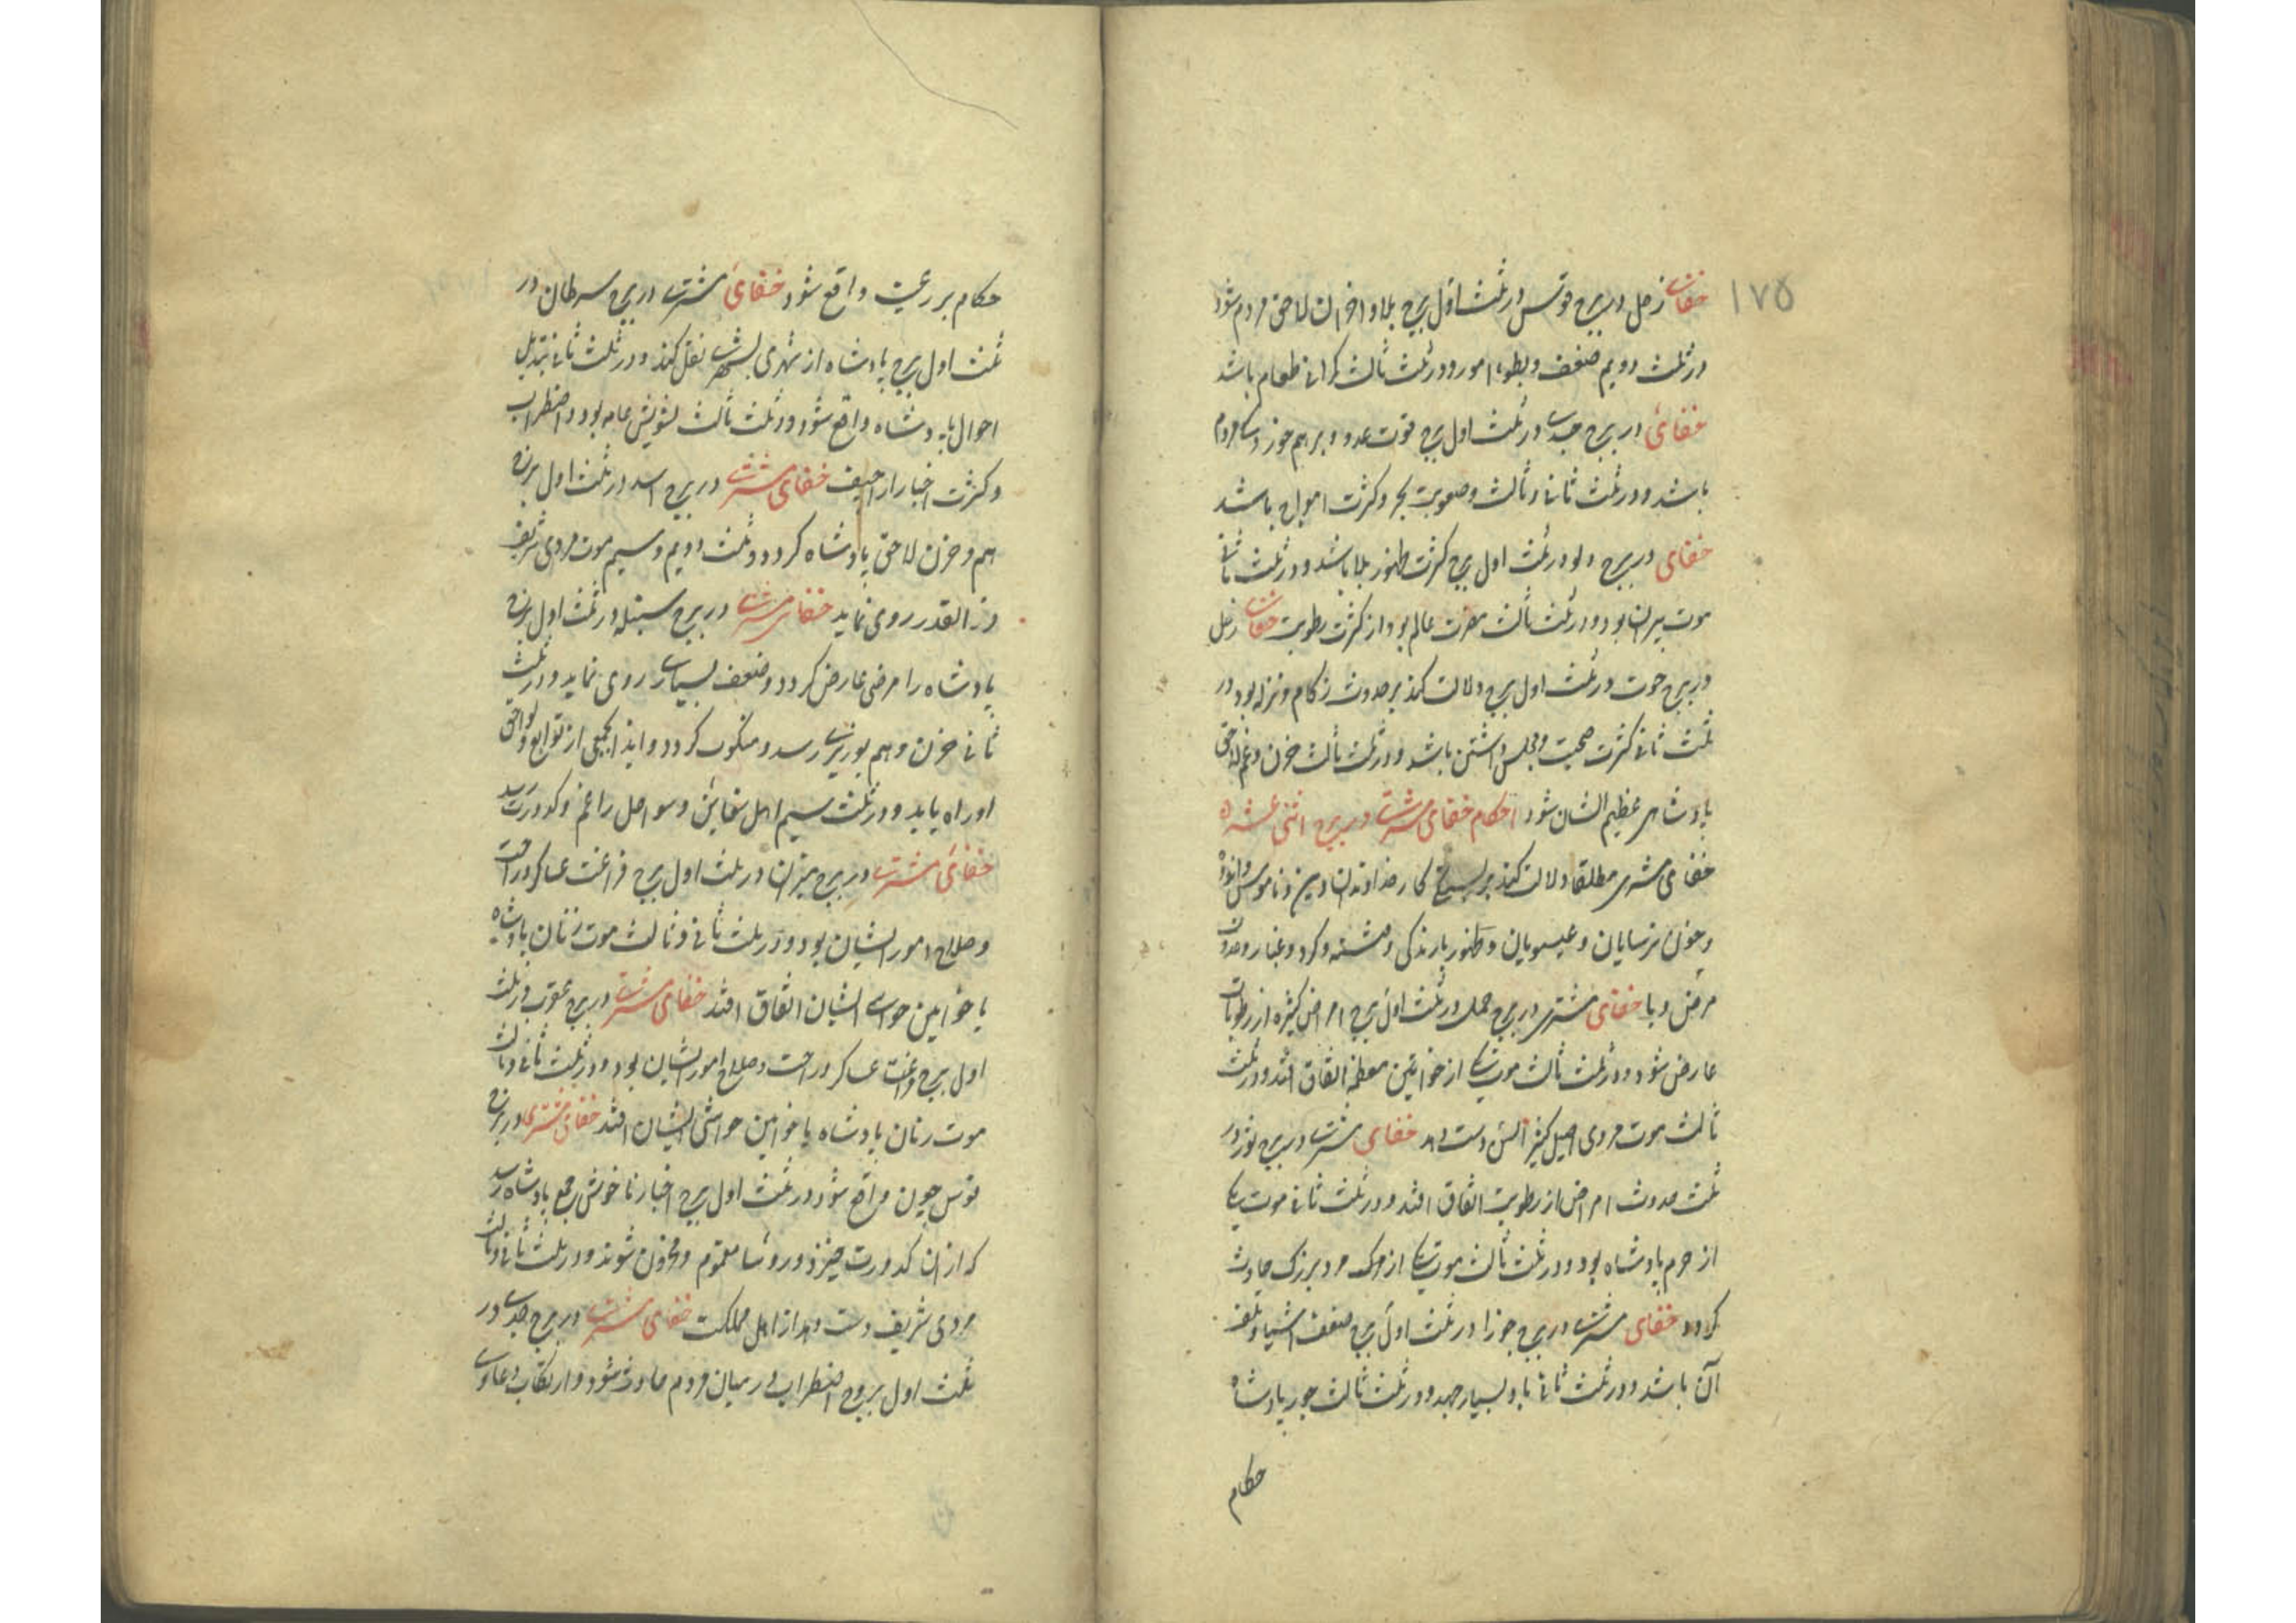 ۱۷۵
خفای زحل در برج قوس در ثلث اول برج بلا و احزان لاحق مردم شود
در ثلث دویم ضعف و بطوء امور و در ثلث ثالث گرانی طعام باشد
خفائ در برج جدی در ثلث اول برج قوت عدو و برهم خوردن مردم
باشد و در ثلث ثانی و ثالث و صعوبت بحر و کثرت امواج باشد
خفای در برج دلو در ثلث اول برج کثرت ظهور بلا باشد و در ثلث ثانی
موت پیران بود و در ثلث ثالث مضرت عالم بود از کثرت رطوبت خفای زحل
در برج حوت در ثلث اول برج دلالت کند بر حدوث زکام و نزله بود در
ثلث ثانی کثرت صحبت و مجلس داشتن باشد و در ثلث ثالث حزن و غم لاحق
پادشاهی عظیم الشان شود احکام خفای مشتری در بروج اثنی عشره
خفای مشتری مطلقا دلالت کند بر کار خداوندان دین و ناموس
و حزن ترسایان و عیسویان و ظهور بارندکی و کرد و غبار و حدوث
مرض و با خفای مشتری در برج حمل در ثلث اول برج امراض کثیره از رطوبات
عارض شود و در ثلث ثالث موت یکی از خواتین معظمه اتفاق افتد و در ثلث
ثالث موت مردی اصیل کثیر السن دست دهد خفای مشتری در برج ثور در
ثلث حدوث امراض از رطوبت اتفاق افتد و در ثلث ثانی موت یکی
از حرم پادشاه بود و در ثلث ثالث موت یکی از مرد بزرک حادث
کردد خفای مشتری در برج جوزا در ثلث اول برج ضعف اشیا و تلف
آن باشد و در ثلث ثانی باد بسیار جهد و در ثلث ثالث جور پادشاه
حکام
حکام بر رعیت واقع شود خفائ مشتری در برج سرطان در
ثلث اول برج پادشاه از شهری بشهری نقل کند و در ثلث ثانی تبدیل
احوال پادشاه واقع شود و در ثلث ثالث تشویش عامه بود و اضطراب
و کثرت اخبار اراجیف خفای مشتری در برج اسد در ثلث اول برج
هم و حزن لاحق پادشاه کردد و ثلث دویم و سیم موت مردی شریف
و ذالقدر روی نماید خفای مشتری در برج سنبله در ثلث اول برج
پادشاه را مرضی عارض کردد و ضعف بسیاری روی نماید و در ثلث
ثانی حزن و هم بوزیری رسد و منکوب کردد و ایذا بجمعی از توابع و لواحق
او راه یابد و در ثلث سیم اهل سفاین و سواحل را غم و کدورت رسد
خفائ مشتری در برج میزان در ثلث اول برج فراغت عساکر و راحت
و صلاح امور ایشان بود و در ثلث ثانی و ثالث موت زنان پادشاه
یا خواتین حواشی ایشان اتفاق افتد خفای مشتری در برج عقرب در ثلث
اول برج فراغت عساکر و راحت و صلاح امور ایشان بود و در ثلث ثانی و ثالث
موت زنان پادشاه یا خواتین حواشی ایشان افتد خفای مشتری در برج
قوس چون واقع شود در ثلث اول برج اخبار ناخوش بجمع پادشاه رسد
که از ان کدورت خیزد و روسا مغموم و محزون شوند و در ثلث ثانی و ثالث
مردی شریف دست دهد از اهل مملکت خفای مشتری در برج جدی در
ثلث اول بروج اضطراب در میان مردم حادث شود و ارتکاب دعاوی